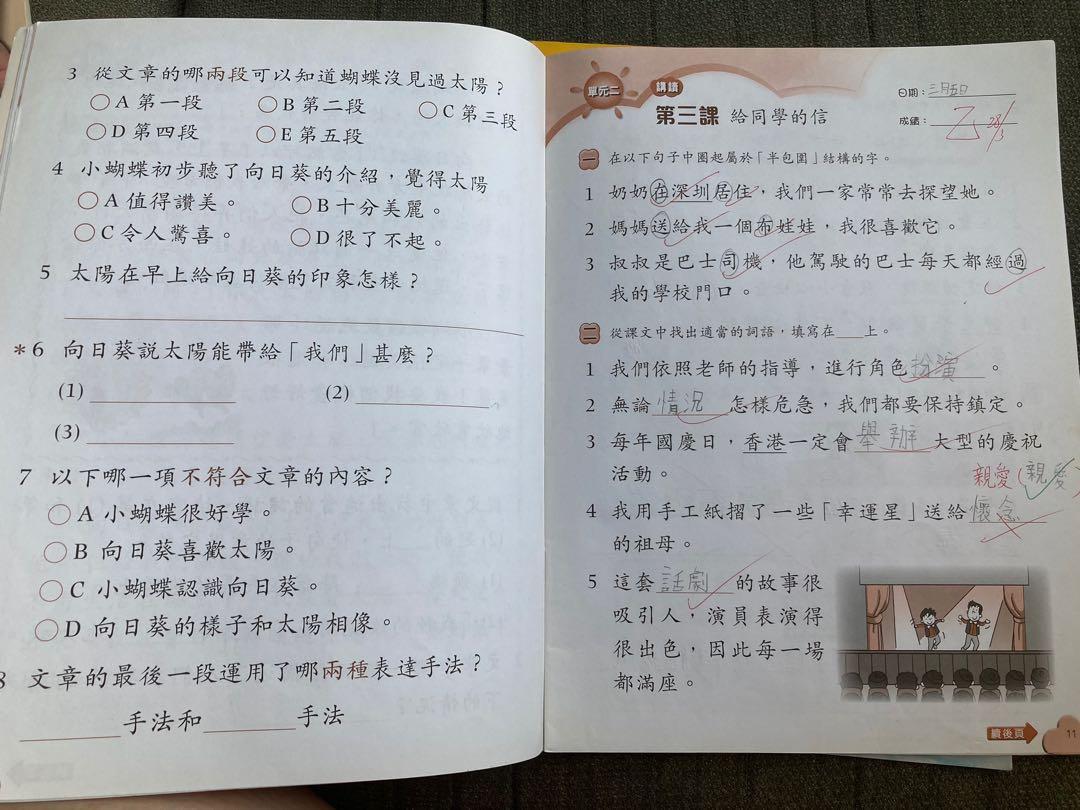 3 從文章的哪兩段可以知道蝴蝶沒見過太陽？
○A 第一段 ○B 第二段 ○C 第三段
○D 第四段 ○E 第五段
4 小蝴蝶初步聽了向日葵的介紹，覺得太陽
○A 值得讚美。 ○B 十分美麗。
○C 令人驚喜。 ○D 很了不起。
5 太陽在早上給向日葵的印象怎樣？
*6 向日葵說太陽能帶給「我們」甚麼？
(1) (2)
(3)
7 以下哪一項不符合文章的內容？
○A 小蝴蝶很好學。
○B 向日葵喜歡太陽。
○C 小蝴蝶認識向日葵。
○D 向日葵的樣子和太陽相像。
8 文章的最後一段運用了哪兩種表達手法？
手法和 手法
單元二 講讀
第三課 給同學的信
日期：三月五日
成績：乙 28/3
一 在以下句子中圈起屬於「半包圍」結構的字。
1 奶奶在深圳居住，我們一家常常去探望她。
2 媽媽送給我一個布娃娃，我很喜歡它。
3 叔叔是巴士司機，他駕駛的巴士每天都經過
我的學校門口。
二 從課文中找出適當的詞語，填寫在 上。
1 我們依照老師的指導，進行角色扮演。
2 無論情況怎樣危急，我們都要保持鎮定。
3 每年國慶日，香港一定會舉辦大型的慶祝
活動。
親愛(親愛)
4 我用手工紙摺了一些「幸運星」送給懷念
的祖母。
5 這套話劇的故事很
吸引人，演員表演得
很出色，因此每一場
都滿座。
續後頁 11